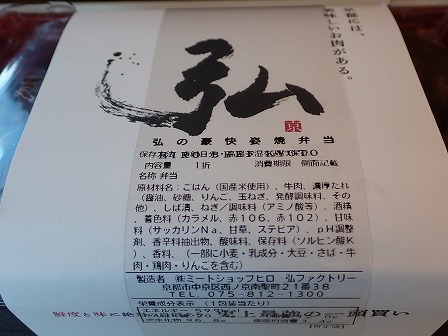 京都には、
美味しいお肉がある。
弘
京
弘の豪快姿焼弁当
保存方法
内容量 1折 消費期限 側面記載
名称 弁当
原材料名:ごはん(国産米使用)、牛肉、濃厚たれ
(醤油、砂糖、りんご、玉ねぎ、発酵調味料、そ
の他)、しば漬、ねぎ/調味料(アミノ酸等)、酒精
、着色料(カラメル、赤106、赤102)、甘味
料(サッカリンNa、甘草、ステビア)、pH調整
剤、香辛料抽出物、酸味料、保存料(ソルビン酸K
)、香料、(一部に小麦・乳成分・大豆・さば・牛
肉・鶏肉・りんごを含む)
製造者 ㈱ミートショップヒロ 弘ファクトリー
京都市中京区西ノ京南聖町21番38
TEL 075-812-1300
栄養成分表示(1包装当たり)
鮮度と味に絶対
の一頭買い